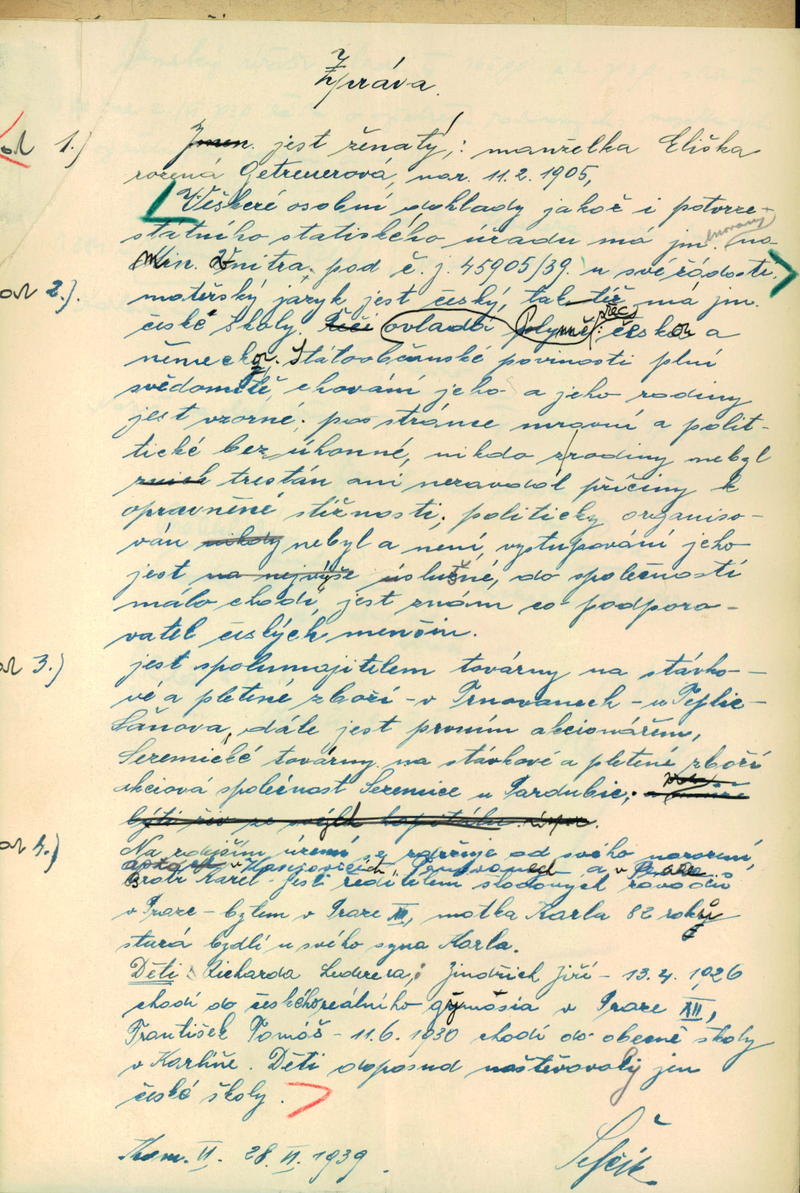 Zpráva.
ad 1.) Jmen. jest ženatý,: manželka Eliška
rozená Getreuerová, nar. 11.2.1905,
Veškeré osobní doklady jakož i potvrze-
státního statiského úřadu má jm.
Min. Vnitra. pod č. j. 45905/39. u své žádosti.
ad 2.). mateřský jazyk jest český, tak též má jm.
české školy. Řečí ovládá plynně: česk a
německ. Státoobčanské povinosti plní
svědomitě, chování jeho a jeho rodiny
jest vzorné; po stránce mravní a polit-
tické bezúhonné, nikdo z rodiny nebyl
trestán ani nezavdal příčiny k
oprávněné stížnosti; politicky organiso-
ván nikdy nebyl a není, vystupování jeho
jest na nejvýše slušné, do společnosti
málo chodí, jest znám co podporo-
vatel českých menšin.
ad 3.) jest spolumajitelem továrny na stávko-
vé a pletené zboží - v Trnovanech - u Teplic-
Šanova, dále jest prvním akcionářem,
Sezemické továrny na stávkové a pletené zboží
akciová společnost Sezemice u Pardubic;
býti živ ze svého kapitálu
ad 4.) Na zdejším území se zdržuje od svého narození,
bratr Karel - jest ředitelem závodů
v Praze - bytem v Praze XII, matka Karla 82 roků
stará bydlí u svého syna Karla.
Děti: Richarda Lederera,: Jindřich Jiří - 13.4.1926
chodí do českého reálního gymnásia v Praze XII,
František Tomáš - 11.6.1930 chodí do obecné školy
v Karlíně. Děti doposud navštěvovaly jen
české školy.
28.VI.1939.